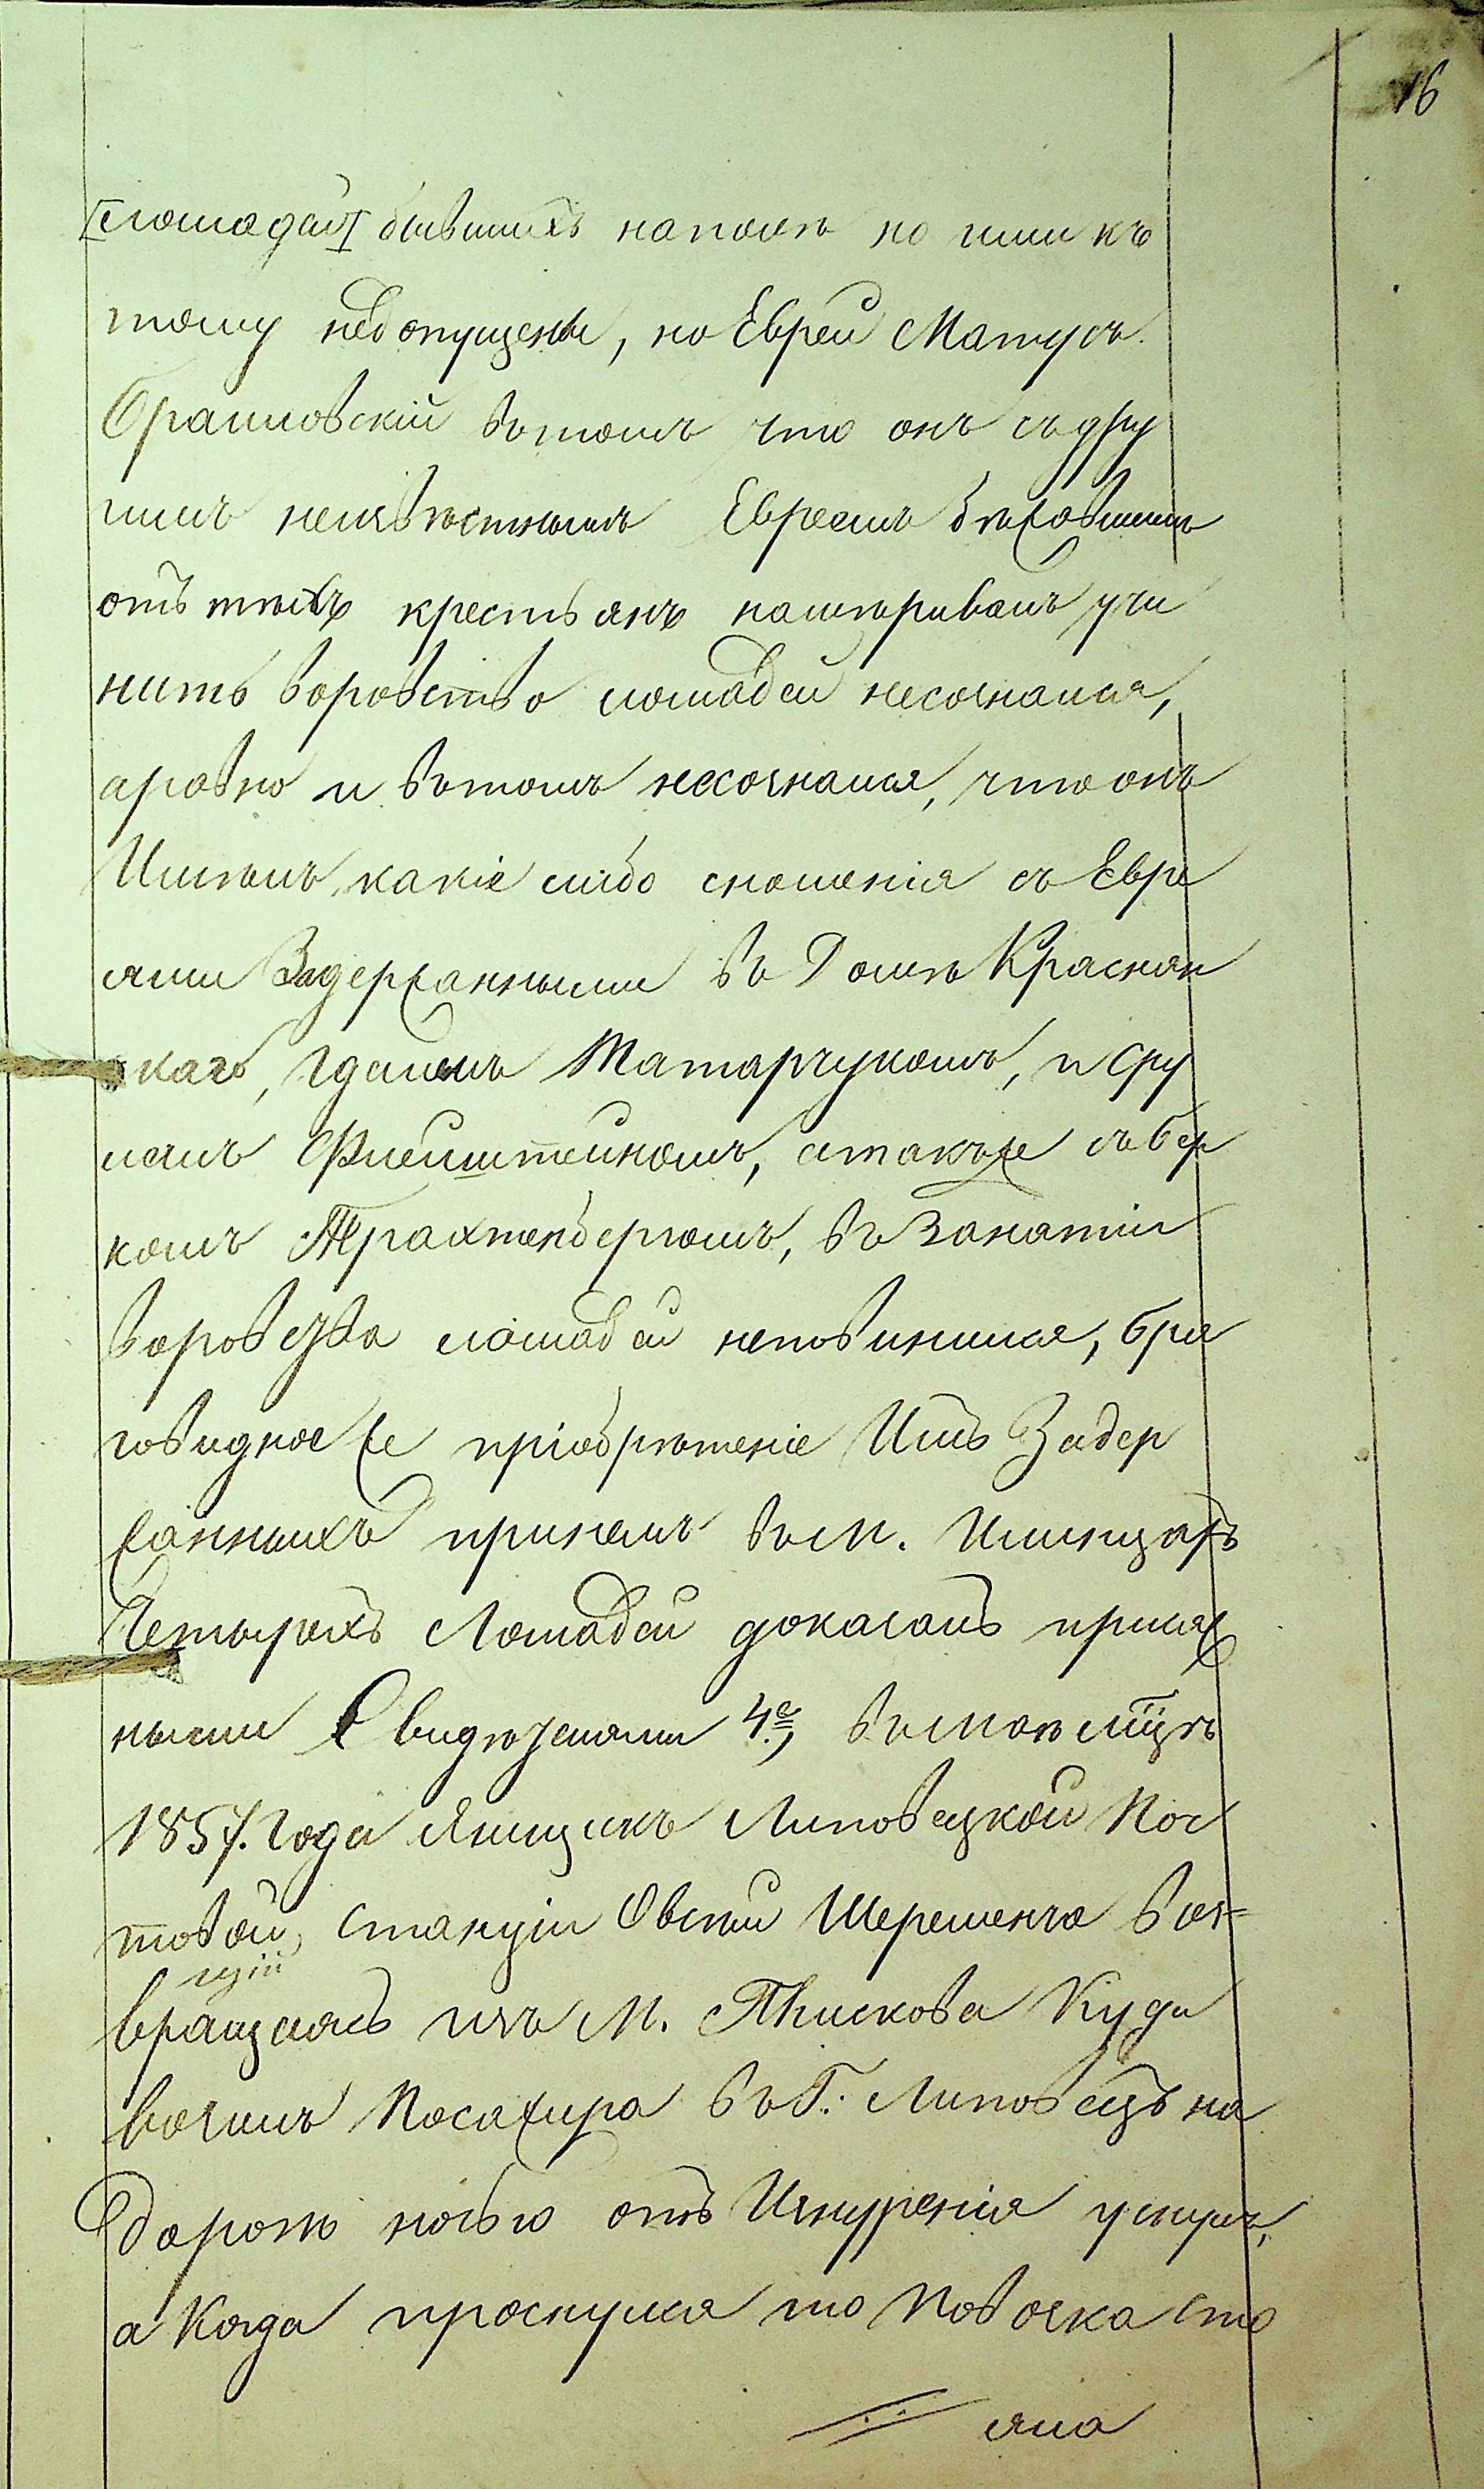 16
[лошадей] бывшихъ на полѣ но ими къ
тому недопущены, но Еврей Матусъ
Браиловскій въ томъ что онъ съ дру
гимъ неизвѣстнымъ Евреемъ бѣжавшимъ
отъ тѣхъ крестьянъ намѣривалъ учи
нить воровство лошадей несознался,
аравно и въ томъ несознался, что онъ
Имѣлъ какіе либо сношенія съ Евре
ями Задержанными въ Домѣ Краснян
скаго, Ицелемъ Татарчукомъ, и Сру
лемъ Флейштейномъ, атакъже съ Бер
комъ Трахтенбергомъ, въ Занятіи
воровства лошадей неповинился, бла
говидное же пріобрѣтеніе Имъ Задер
жанныхъ принемъ въ м. Илинцахъ
Четырехъ Лошадей доказалъ присяж
ными Свидѣтелями 4е, въ Маѣ мцѣ
1857. Года Ямщикъ Липовецкой Поч
товой Станціи Овсій Шеременко воз-
щій
вращаясь изъ М. Пыскова Куда
возилъ Посажира въ Г. Липовецъ на
Дорогѣ ночью отъ Изнуренія уснулъ,
а Когда проснулся то Повозка сто
яла